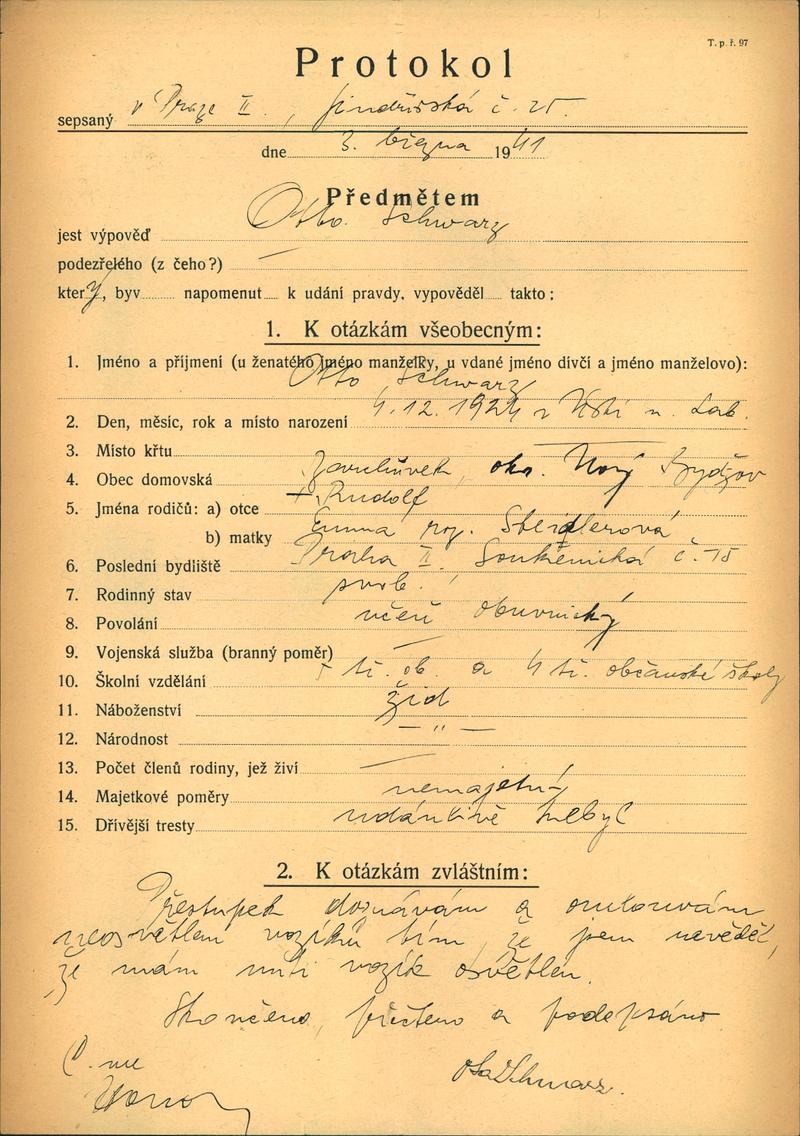 T. p. ř. 97
Protokol
sepsaný v Praze II., Jindřišská č. 25.
dne 3. března 1941
Předmětem
jest výpověď Otto Schwarz
podezřelého (z čeho?) —
který, byv napomenut k udání pravdy, vypověděl takto:
1. K otázkám všeobecným:
1. Jméno a příjmení (u ženatého jméno manželky, u vdané jméno dívčí a jméno manželovo):
Otto Schwarz
2. Den, měsíc, rok a místo narození 4.12.1924 v Ústí n. Lab.
3. Místo křtu —
4. Obec domovská okr. Nový Bydžov
5. Jména rodičů: a) otce + Rudolf
b) matky Emma roz. Steidlerová
6. Poslední bydliště Praha II. Soukenická č. 15
7. Rodinný stav svob.
8. Povolání učeň obuvnický
9. Vojenská služba (branný poměr) —
10. Školní vzdělání tř. ob. a 4 tř. občanské školy
11. Náboženství žid
12. Národnost — " —
13. Počet členů rodiny, jež živí —
14. Majetkové poměry nemajetný
15. Dřívější tresty udánlivě nebyl
2. K otázkám zvláštním:
Přestupek doznávám a omlouvám
neosvětlení vozíku tím, že jsem nevěděl,
že mám míti vozík osvětlen.
Skončeno, přečteno a podepsáno
Otto Schwarz.